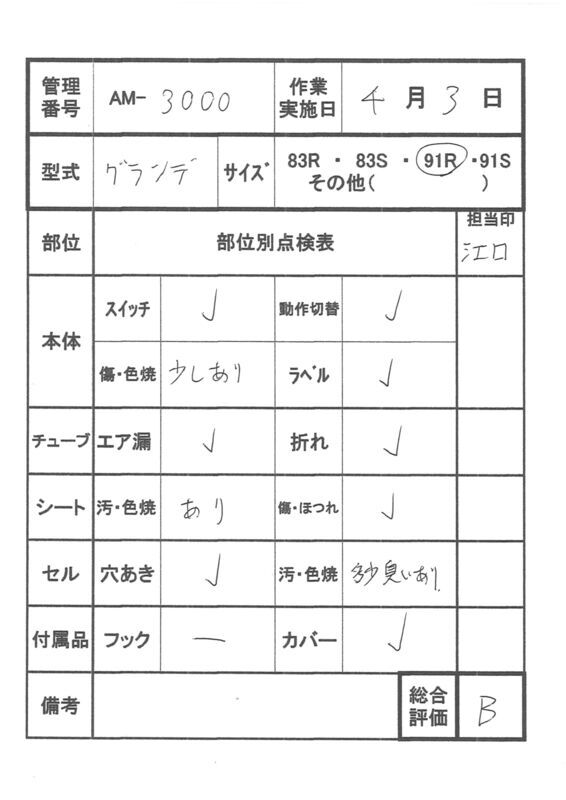 管理番号 AM- 3000 作業実施日 4月3日
型式 グランデ サイズ 83R ・ 83S ・ 91R ・91S
その他( )
部位 部位別点検表 担当印 江口
本体 スイッチ ✓ 動作切替 ✓
傷・色焼 少しあり ラベル ✓
チューブ エア漏 ✓ 折れ ✓
シート 汚・色焼 あり 傷・ほつれ ✓
セル 穴あき ✓ 汚・色焼 多少臭いあり
付属品 フック ー カバー ✓
備考 総合評価 B